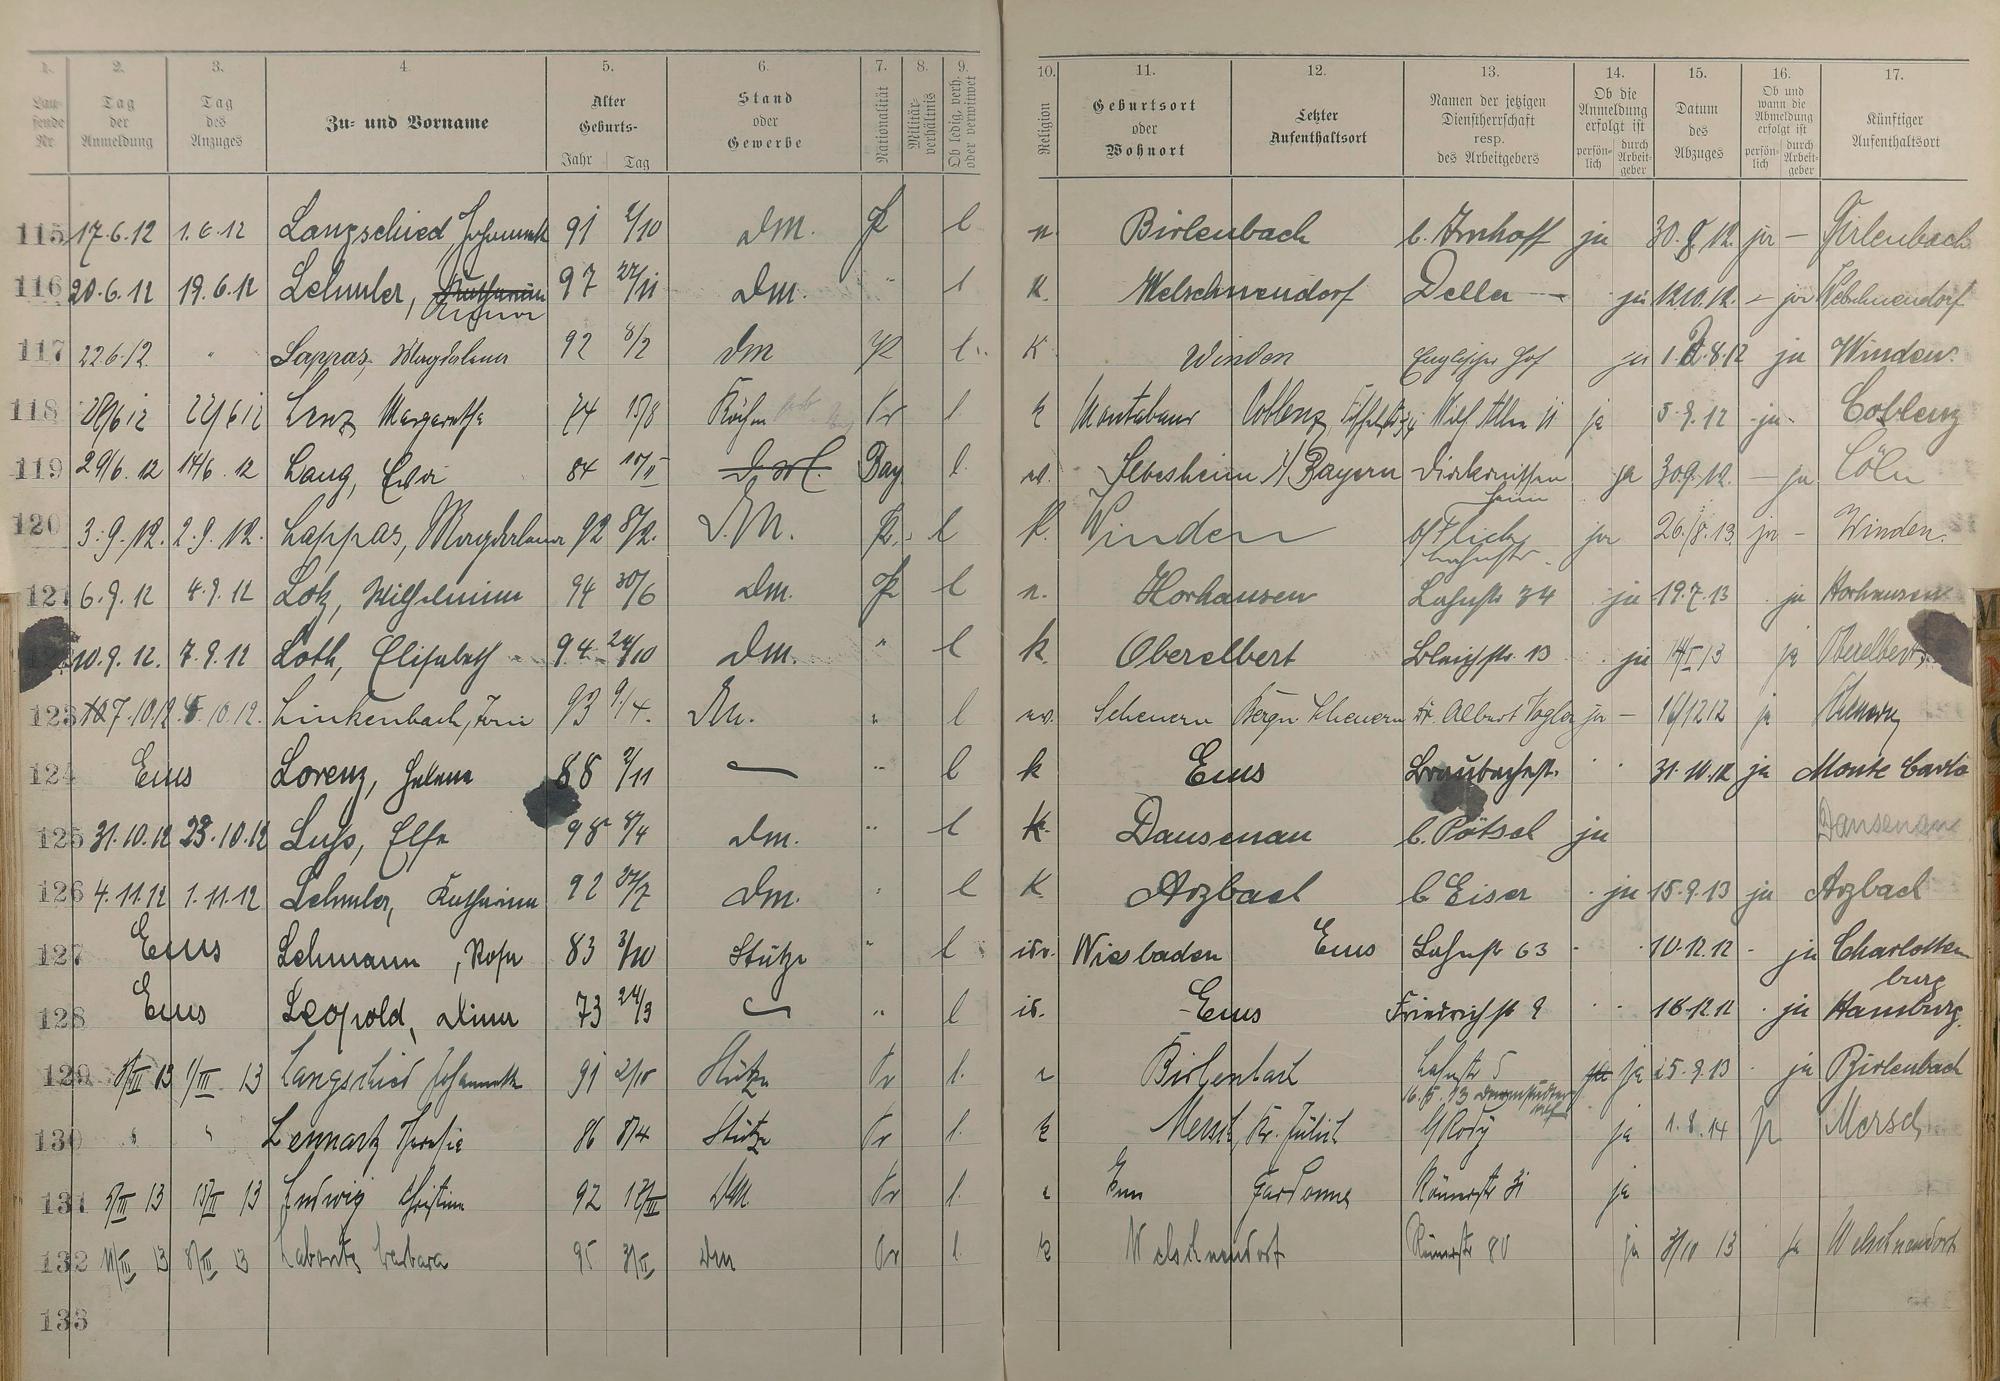 1. 2. 3. 4. 5. 6. 7. 8. 9. 10. 11. 12. 13. 14. 15. 16. 17.
Lau-
fende
Nr
Tag
der
Anmeldung
Tag
des
Anzuges
Zu- und Vorname
Alter
Geburts-
Jahr Tag
Stand
oder
Gewerbe
Nationalität
Militär-
verhältnis
Ob ledig, verh.
oder verwitwet
Religion
Geburtsort
oder
Wohnort
Letzter
Aufenthaltsort
Namen der jetzigen
Dienstherrschaft
resp.
des Arbeitgebers
Ob die
Anmeldung
erfolgt ist
persön-
lich
durch
Arbeit-
geber
Datum
des
Abzuges
Ob und
wann die
Abmeldung
erfolgt ist
persön-
lich
durch
Arbeit-
geber
Künftiger
Aufenthaltsort
115 17.6.12 1.6.12 Langschied Johannette 91 2/10 Dm. l Birlenbach b. Imhoff ja 30.8.12. ja – Birlenbach
116 20.6.12 19.6.12 Lehmler, 97 22/11 Dm. " l K. Welschneudorf Deller ja 12.10.12. – ja Welschneudorf
117 22.6.12 " Lappas, Magdalena 92 8/2 Dm l K Winden Englischer Hof ja 1.8.12 ja Winden.
118 22/6 12 Lenz Margarethe 74 15/8 Köchin Pr l k Montabaur Coblenz, ja 5.9.12 -ja- Coblenz
119 29/6.12 14/6.12 Lang, Eva 84 Bay l. Bayern ja 30.9.12. – ja Cöln
120 3.9.12. 2.9.12. Lappas, Magdalena 92 8/2. D.M. l K. Winden b/ Flick ja 26./8.13 ja – Winden.
121 6.9.12 4.9.12 Lotz, Wilhelmine 94 30/6 Dm. l n. Horhausen Lahnstr 34 ja 19.7.13 ja Horhausen
10.9.12. 7.9.12 Loth, Elisabeth 94 24/10 Dm. " l k. Oberelbert 13 ja 13 ja Oberelbert
123 7.10.12 10.12. Linkenbach, 93 9./4. Dm. " l Scheuern Bergn. Scheuern Dr. Albert Vogler ja – ja
124 Ems Lorenz, Helena 88 2/11 " l k Ems Braubacherstr. 31.10.12 ja Monte Carlo
125 31.10.12 23.10.12 Elsa 98 8/4 Dm. " l k. Dausenau b. Pötsch ja Dausenau
126 4.11.12 1.11.12 Lehmler, Katharina 92 Dm. " l K. Arzbach b Eiser ja 15.9.13 ja Arzbach
127 Ems Lehmann, Rosa 83 3/10 Stütze " l isr. Wiesbaden Ems Lahnstr 63 10.12.12 - ja Charlotten
burg
128 Ems Leopold, Dina 73 24/3 " l is. Ems Friedrichstr 9 16.12.12 ja Hamburg.
129 8/III 13 1/III 13 Langschied Johannette 91 2/10 Stütze Pr l. Birlenbach Lahnstr 5 ja 15.9.13 ja Birlenbach
130 " " Lennartz 86 8/4 Stütze Pr l. k Mersch, Kr. Jülich ja 1.8.14 ja Mersch
131 13 13 Ludwig Christine 92 DM Pr l. Römerstr 31 ja
132 11/III 13 8/III 13 Labonte Barbara 95 Dm Pr l. k Welschneudorf Römerstr 80 ja 13 ja Welschneudorf
133